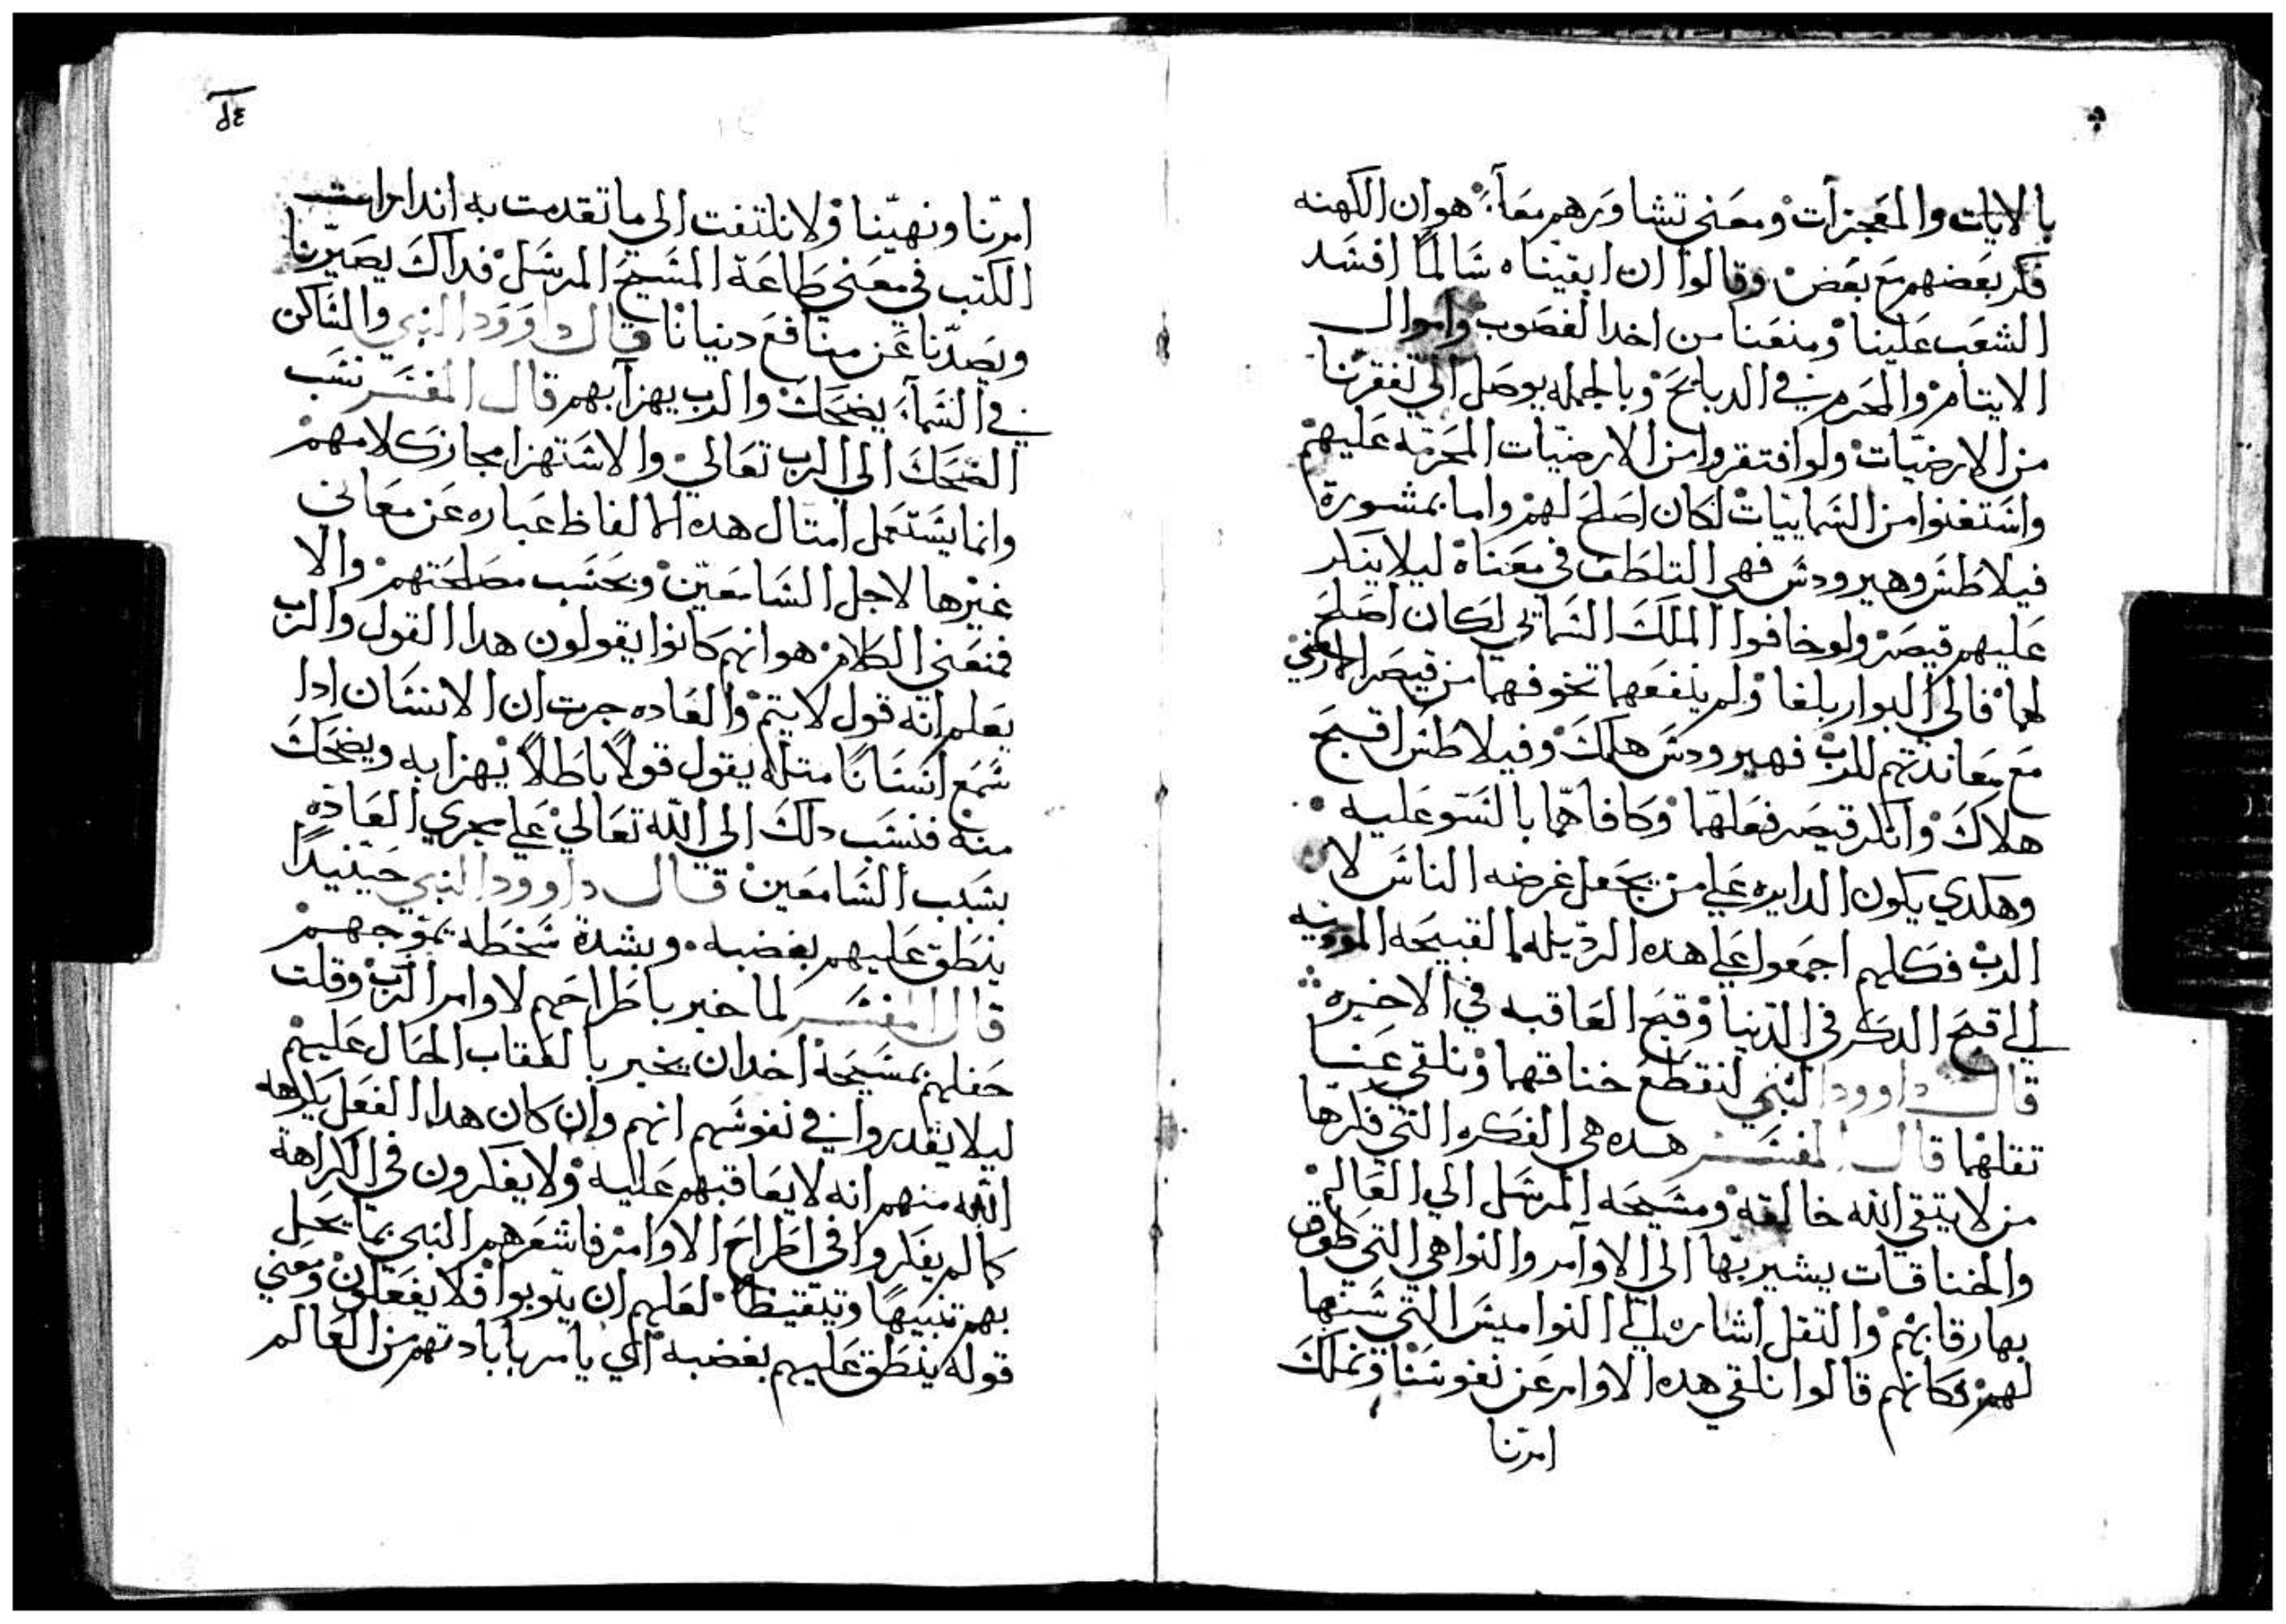 بالايات والمعجزات ومعنى تشاورهم معاً هو ان الكهنه
فكر بعضهم مع بعض وقالوا ان ابقيناه سالماً افسد
الشعب علينا ومنعنا من اخد الغصوب واموال
الايتام والمحرم في الدبايح وبالجمله يوصل الي تفقرنا
من الارضيّات ولو افتقروا من الارضيّات المحرمّه عليهم
واستغنوا من السماييات لكان اصلح لهم واما بمشورة
فيلاطس وهيرودس فهي التلطف في معناه ليلا ينكر
عليهم قيصر ولو خافوا الملك السماي لكان اصلح
لهما فالى البوار بلغا ولم ينفعهما تخوفهما من قيصر الارضي
مع معاندتهم للرب فهيرودس هلك وفيلاطس اقبح
هلاك وانكر قيصر فعلهما وكافاهما بالسو عليه
وهكدي يكون الدايره علي من يجعل غرضه الناس لا
الرب فكلهم اجمعوا علي هده الرديله القبيحه الموديه
الي اقبح الدكر في الدنيا وقبح العاقبه في الاخره
قال داوود النبي لنقطع خناقهما ونلقي عنا
تقلهما قال المفسر هده هي الفكره التي فكرها
من لا يتقي الله خالقه ومسيحه المرسل الي العالم
والخناقات يشير بها الى الاوامر والنواهي التي طوق
بها رقابهم والتقل اشاره الي النواميس التي سنها
لهم فكانهم قالوا نلقي هده الاوامر عن نفوسنا ونملك
امرنا
٢٤
امرنا ونهينا ولا نلتفت الي ما تقدمت به اندارات
الكتب في معنى طاعة المسيح المرسل فداك يصيّرنا
ويصدّنا عن منافع دنيانا قال داوود النبي والساكن
في السماء يضحك والرب يهزا بهم قال المفسر نسب
الضحك الي الرب تعالي والاستهزا مجاز كلامهم
وانما يستعمل امتال هده الالفاظ عباره عن معانى
غيرها لاجل السامعين وبحسب مصلحتهم والا
فمعنى الكلام هو انهم كانوا يقولون هدا القول والرب
يعلم انه قول لا يتم والعاده جرت ان الانسان ادا
سمع انسانا متله يقول قولاً باطلاً يهزا به ويضحك
منه فنسب دلك الى الله تعالي علي مجري العاده
بسبب السامعين قال داوود النبي حينيداً
ينطق عليهم بغضبه وبشدة سخطه يموجهم
قال المفسر لما خبر باطراحهم لاوامر الرب وقلت
حفلهم بمسيحه اخد ان يخبر بالعقاب الحال عليهم
ليلا يقدروا في نفوسهم انهم وان كان هدا الفعل يكرهه
الله منهم انه لا يعاقبهم عليه ولا يفكرون في الكراهة
كما لم يفكروا في اطراح الاوامر فاشعرهم النبي بما يحل
بهم تنبيهاً وتيقيظا لعلهم ان يتوبوا فلا يفعلون ومعني
قوله ينطق عليهم بغضبه اي يامر بابادتهم من العالم